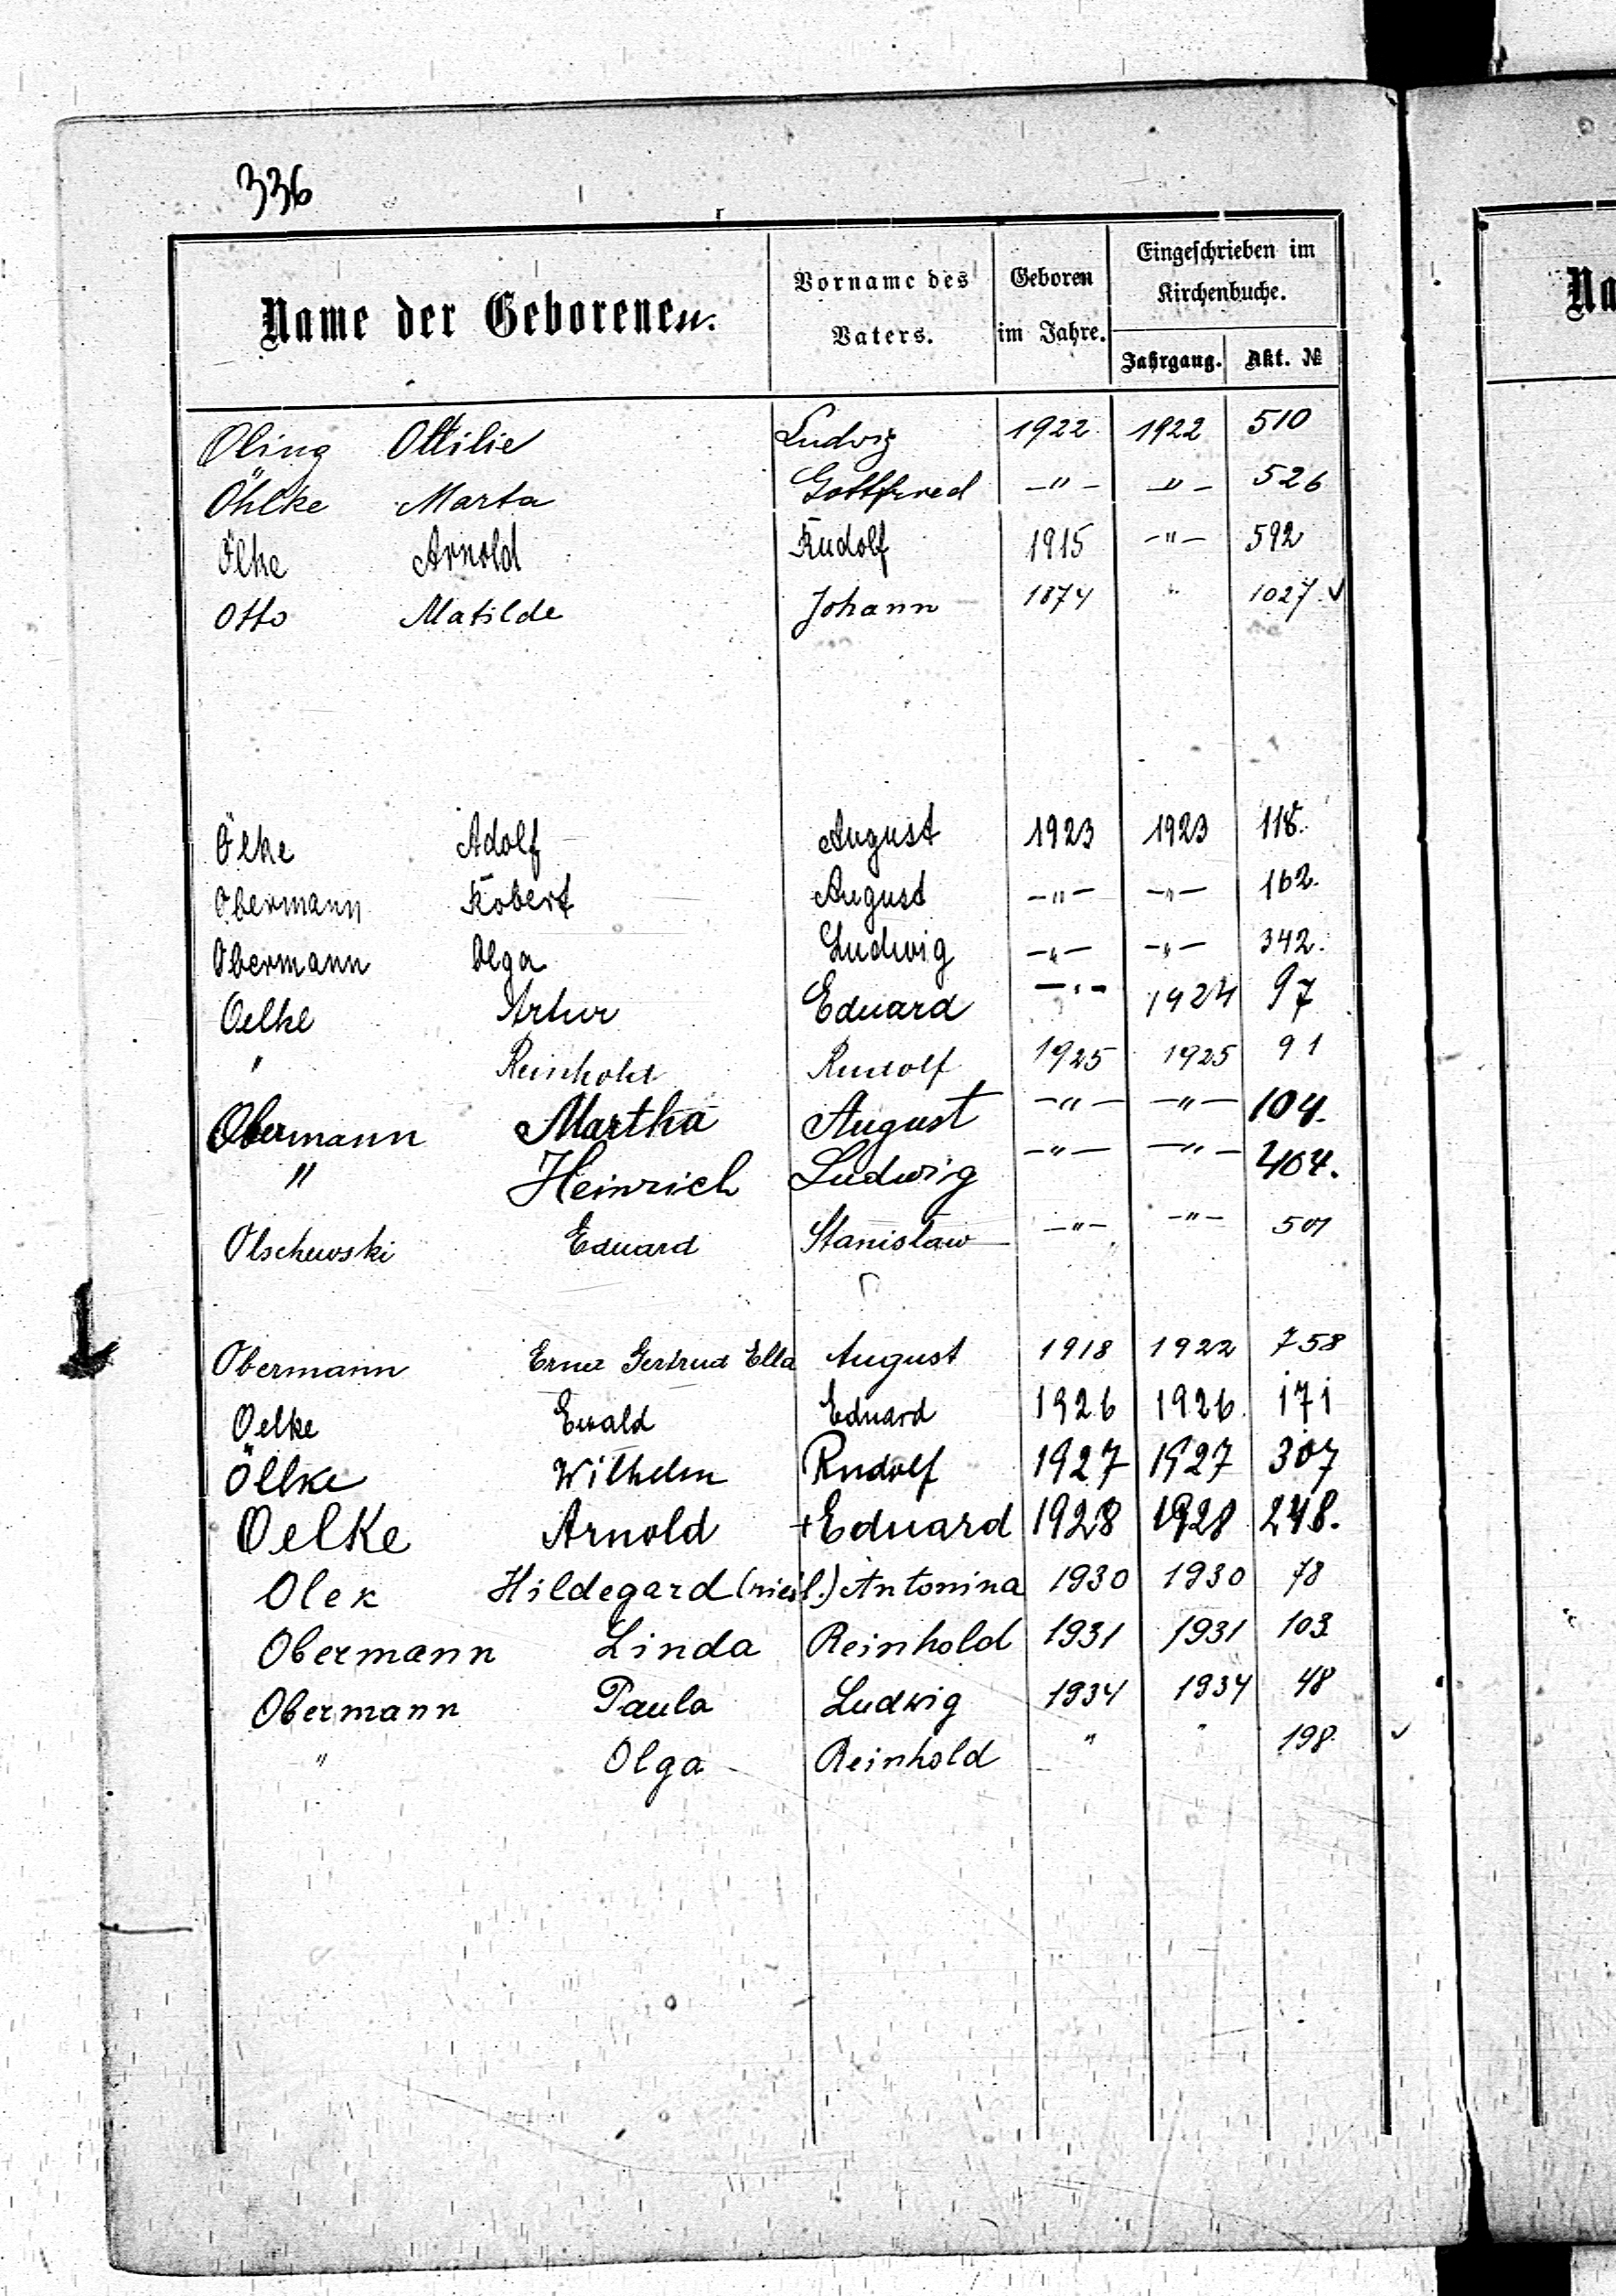 336
Name der Geborenen. Vorname des Vaters. Geboren im Jahre. Eingeschrieben im Kirchenbuche.
Jahrgang. Akt. №
Oling Ottilie Ludwig 1922 1922 510
Öhlke Marta Gottfried -"- -"- 526
Ölke Arnold Rudolf 1915 -"- 592
Otto Matilde Johann 1874 " 1027 ✓
Ölke Adolf August 1923 1923 118.
Obermann Robert August -"- -"- 162.
Obermann Olga Ludwig -"- -"- 342.
Oelke Artur Eduard -"- 1924 97
" Reinhold Rudolf 1925 1925 91
Obermann Martha August -"- -"- 104.
" Heinrich Ludwig -"- -"- 404.
Olschewski Eduard Stanislaw -"- -"- 501
Obermann Erna Gertrud Ella August 1918 1922 758
Oelke Ewald Eduard 1926 1926 171
Öllke Wilhelm Rudolf 1927 1927 307
Oelke Arnold +Eduard 1928 1928 248.
Olek Hildegard Antonina 1930 1930 78
Obermann Linda Reinhold 1931 1931 103
Obermann Paula Ludwig 1934 1934 48
" Olga Reinhold " " 198 ✓
Na